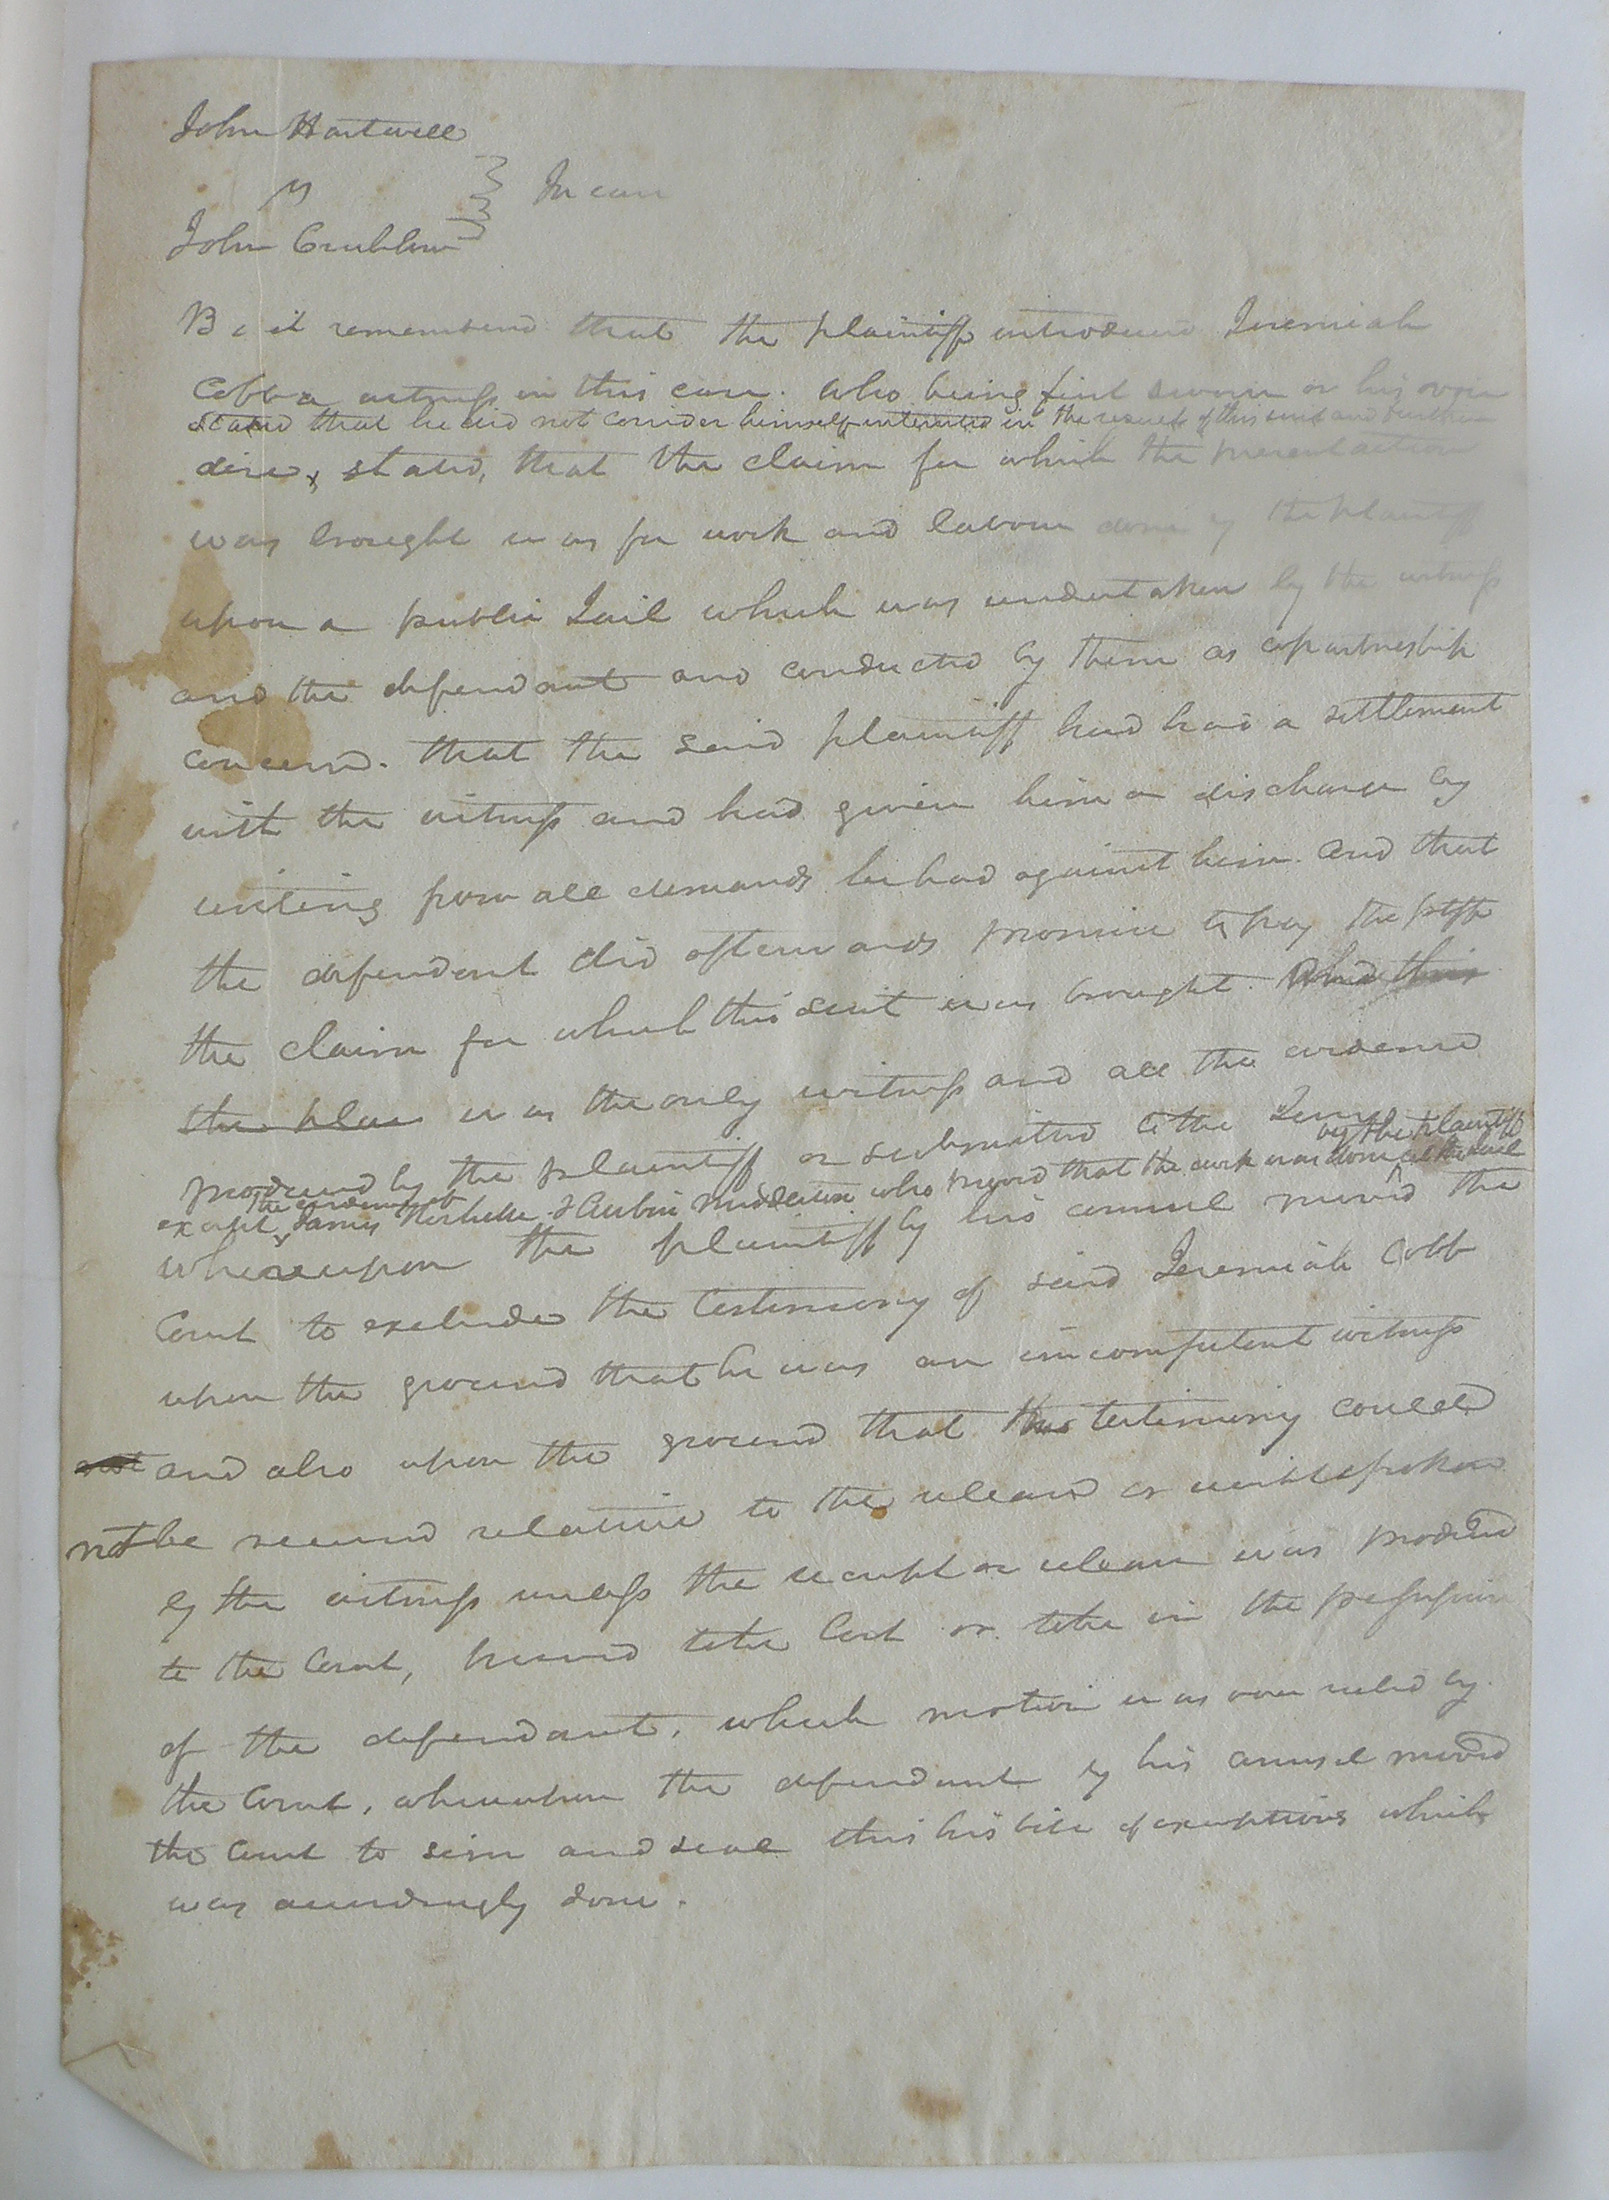 John Hartwell
vs } In case
John Crichlow
Be it remembered that the plaintiff introduced Jeremiah
Cobb a witness in this case. who being first sworn on his voir
stated that he did not consider himself interested in the result of this suit and further
dire, stated, that the claim for which the present action
was brought was for work and labour done by the plaintiff
upon a public Jail which was undertaken by the witness
and the defendant and conducted by them as copartnership
concern. that the said plaintiff had had a settlement
with the witness and had given him a discharge by
writing from all demands he had against him. and that
the defendant did afterwards promise to pay the ptff
the claim for which this suit was brought. And this
the plain was the only witness and all the evidence
produced by the plaintiff or submitted to the Jury
by the plaintiff
the evidence of
except James & Aubin Middleton who proved that the work was done at the Jail
whereupon the plaintiff by his counsel moved the
Court to exclude the testimony of said Jeremiah Cobb
upon the ground that he was an incompetent witness
and also upon the ground that this testimony could
not be received relative to the release or writ spoken
by the witness unless the receipt or release was produced
to the Court, proved to be lost or to be in the possession
of the defendant. which motion was over ruled by
the Court, whereupon the defendant by his counsel moved
the Court to sign and seal this his bill of exceptions which
was accordingly done.